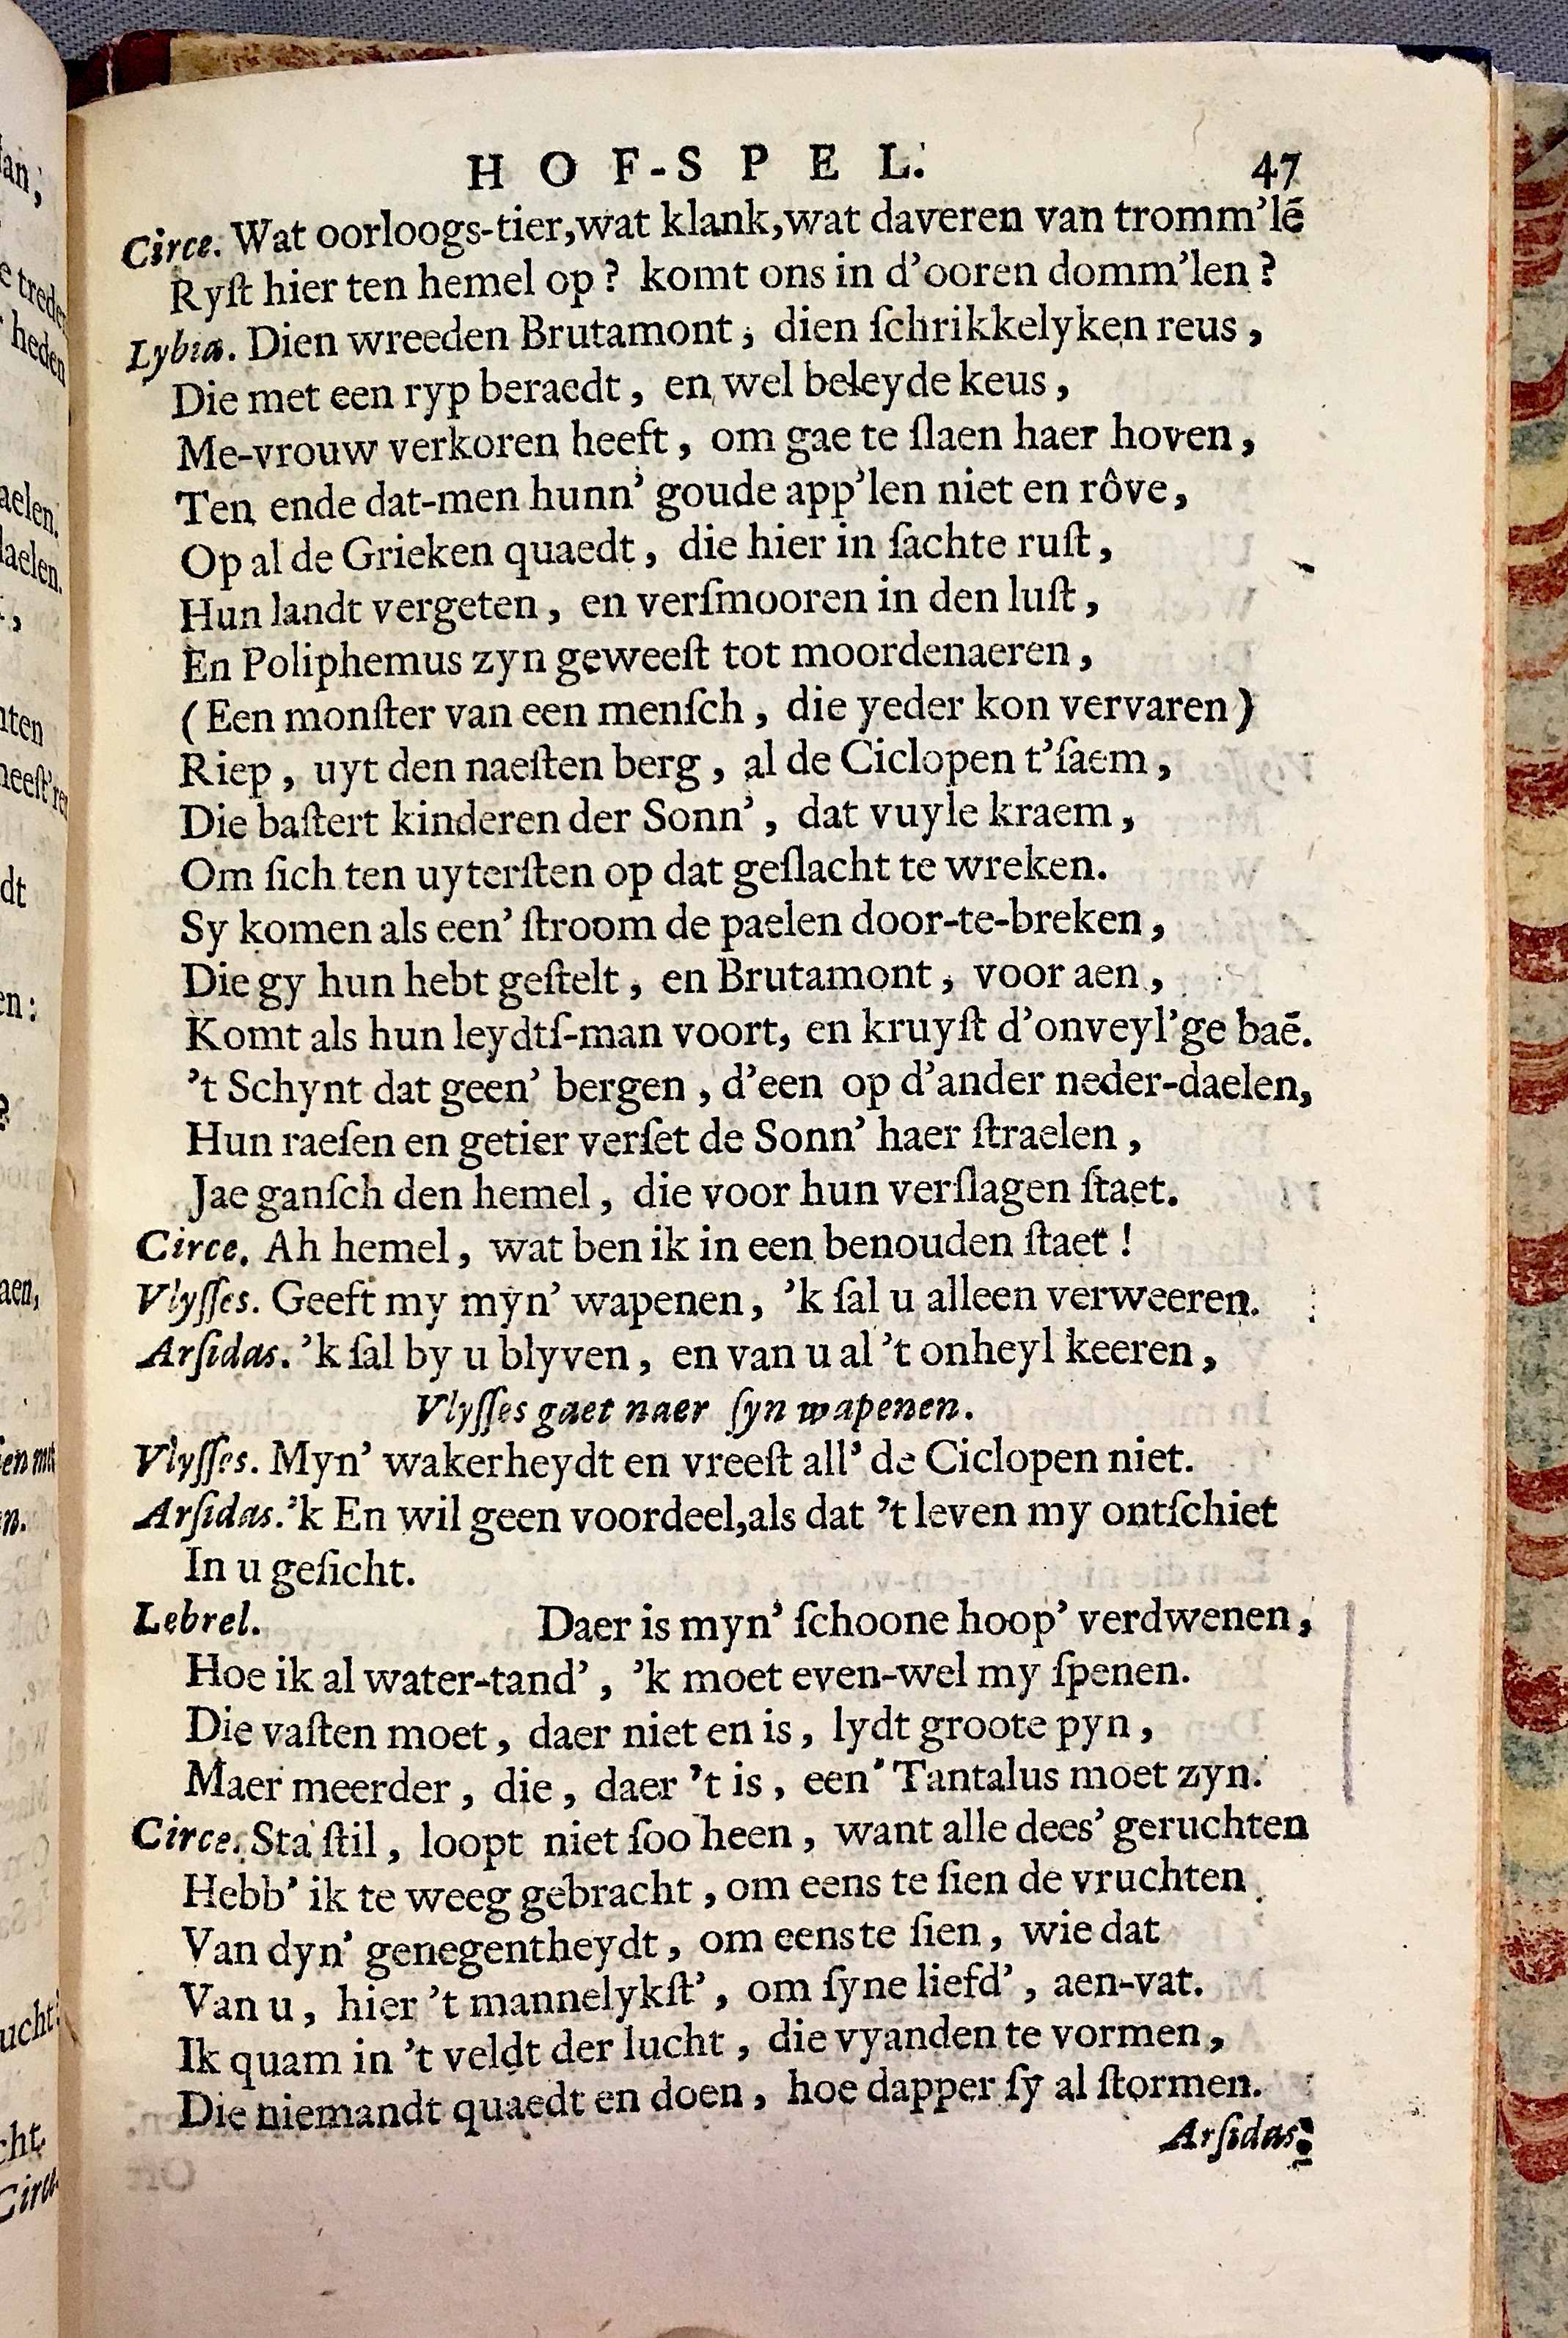 HOF-SPEL. 47
Circe. Wat oorloogs-tier,wat klank,wat daveren van tromm’lē
Ryſt hier ten hemel op? komt ons in d’ooren domm’len?
Lybia. Dien wreeden Brutamont, dien ſchrikkelyken reus,
Die met een ryp beraedt, en wel beleyde keus,
Me-vrouw verkoren heeft, om gae te ſlaen haer hoven,
Ten ende dat-men hunn’ goude app’len niet en rôve,
Op al de Grieken quaedt, die hier in ſachte ruſt,
Hun landt vergeten, en verſmooren in den luſt,
En Poliphemus zyn geweeſt tot moordenaeren,
(Een monſter van een menſch, die yeder kon vervaren)
Riep, uyt den naeſten berg, al de Ciclopen t’ſaem,
Die baſtert kinderen der Sonn’, dat vuyle kraem,
Om ſich ten uyterſten op dat geſlacht te wreken.
Sy komen als een’ ſtroom de paelen door-te-breken,
Die gy hun hebt geſtelt, en Brutamont, voor aen,
Komt als hun leydtſ-man voort, en kruyſt d’onveyl’ge baē.
’t Schynt dat geen’ bergen, d’een op d’ander neder-daelen,
Hun raeſen en getier verſet de Sonn’ haer ſtraelen,
Jae ganſch den hemel, die voor hun verſlagen ſtaet.
Circe. Ah hemel, wat ben ik in een benouden ſtaet!
Vlyſſes. Geeft my myn’ wapenen, ’k ſal u alleen verweeren.
Arſidas. ’k ſal by u blyven, en van u al ’t onheyl keeren,
Vlyſſes gaet naer ſyn wapenen.
Vlyſſes. Myn’ wakerheydt en vreeſt all’ de Ciclopen niet.
Arſidas. ’k En wil geen voordeel,als dat ’t leven my ontſchiet
In u geſicht.
Lebrel. Daer is myn’ ſchoone hoop’ verdwenen,
Hoe ik al water-tand’, ’k moet even-wel my ſpenen.
Die vaſten moet, daer niet en is, lydt groote pyn,
Maer meerder, die, daer ’t is, een’ Tantalus moet zyn.
Circe. Sta ſtil, loopt niet ſoo heen, want alle dees’ geruchten
Hebb’ ik te weeg gebracht, om eens te ſien de vruchten
Van dyn’ genegentheydt, om eens te ſien, wie dat
Van u, hier ’t mannelykſt’, om ſyne liefd’, aen-vat.
Ik quam in ’t veldt der lucht, die vyanden te vormen,
Die niemandt quaedt en doen, hoe dapper ſy al ſtormen.
Arſidas.